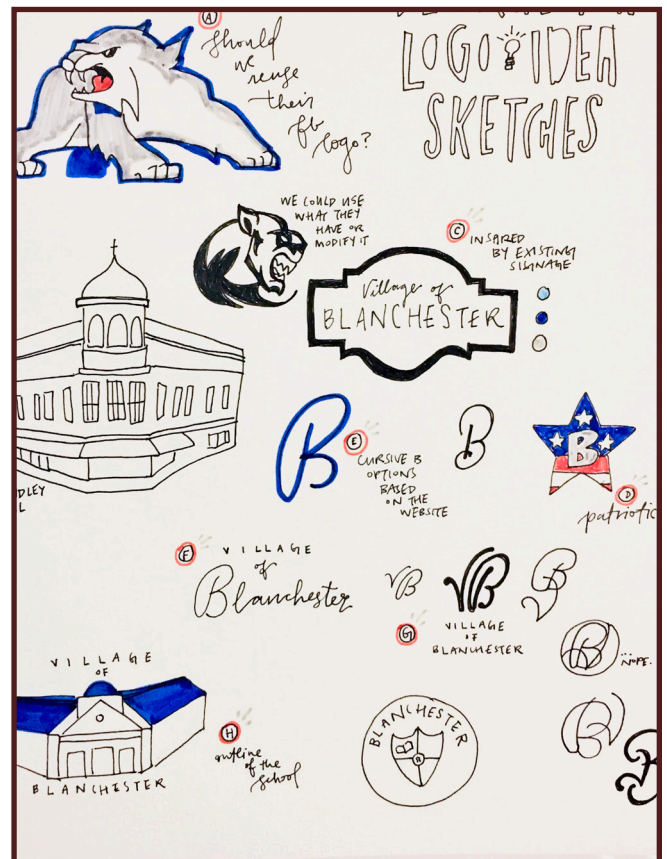 LOGO IDEA
SKETCHES
A
should
we
reuse
their
fb
logo?
WE COULD USE
WHAT THEY
HAVE OR
MODIFY IT
C
INSPIRED
BY EXISTING
SIGNAGE
Village of
BLANCHESTER
B
E
CURSIVE B
OPTIONS
BASED
ON THE
WEBSITE
B
B
D
patriotic
DLEY
L
F
VILLAGE
of
Blanchester
VB
VB
VB
G
VILLAGE
OF
BLANCHESTER
B
...NOPE.
VILLAGE
OF
BLANCHESTER
H
outline
of the
school
BLANCHESTER
B
B